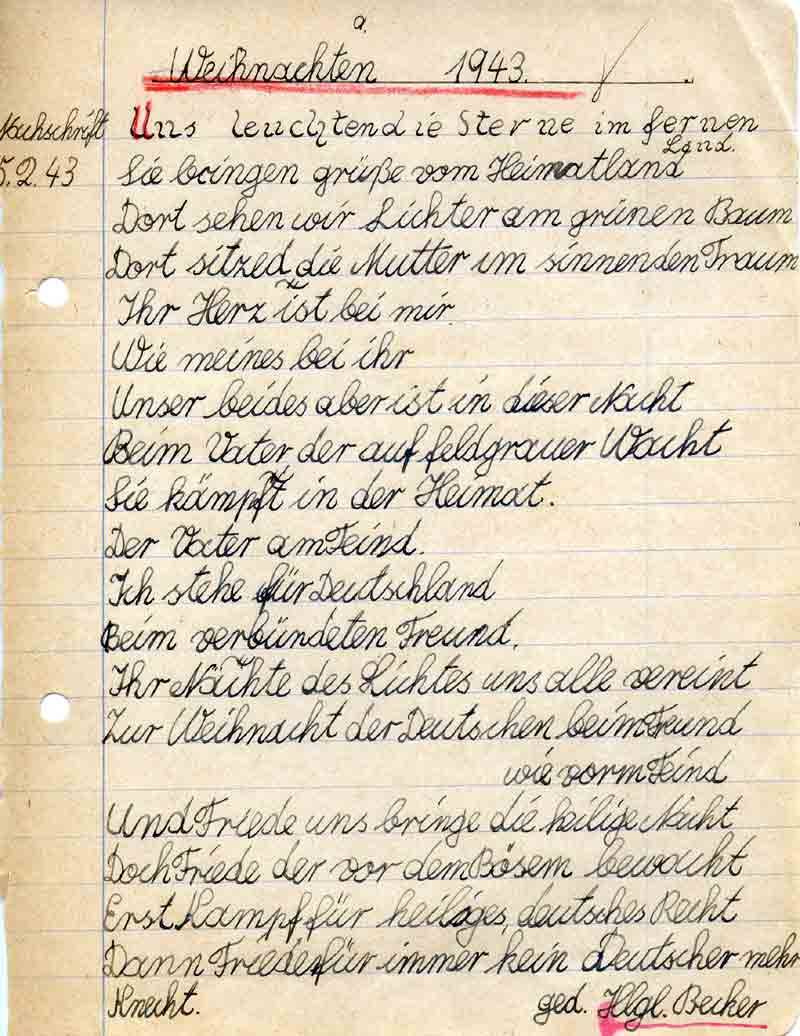 a.
Weihnachten 1943.
Nachschrift Uns leuchten die Sterne im fernen
Land.
5.2.43 Sie bringen grüße vom Heimatland
Dort sehen wir Lichter am grünen Baum
Dort sitzed die Mutter im sinnenden Traum
Ihr Herz ist bei mir
Wie meines bei ihr
Unser beides aber ist in dieser Nacht
Beim Vater, der auf feldgrauer Wacht
Sie kämpft, in der Heimat.
Der Vater am Feind.
Ich stehe für Deutschland
Beim verbündeten Freund.
Ihr Nächte des Lichtes uns alle vereint
Zur Weihnacht der Deutschen beim Freund
wie vorm Feind
Und Friede uns bringe die heilige Nacht
Doch Friede der vor dem Bösem bewacht
Erst Kampf für heiliges, deutsches Recht
Dann Friede für immer kein Deutscher mehr
Knecht. ged. Hlgl. Becker